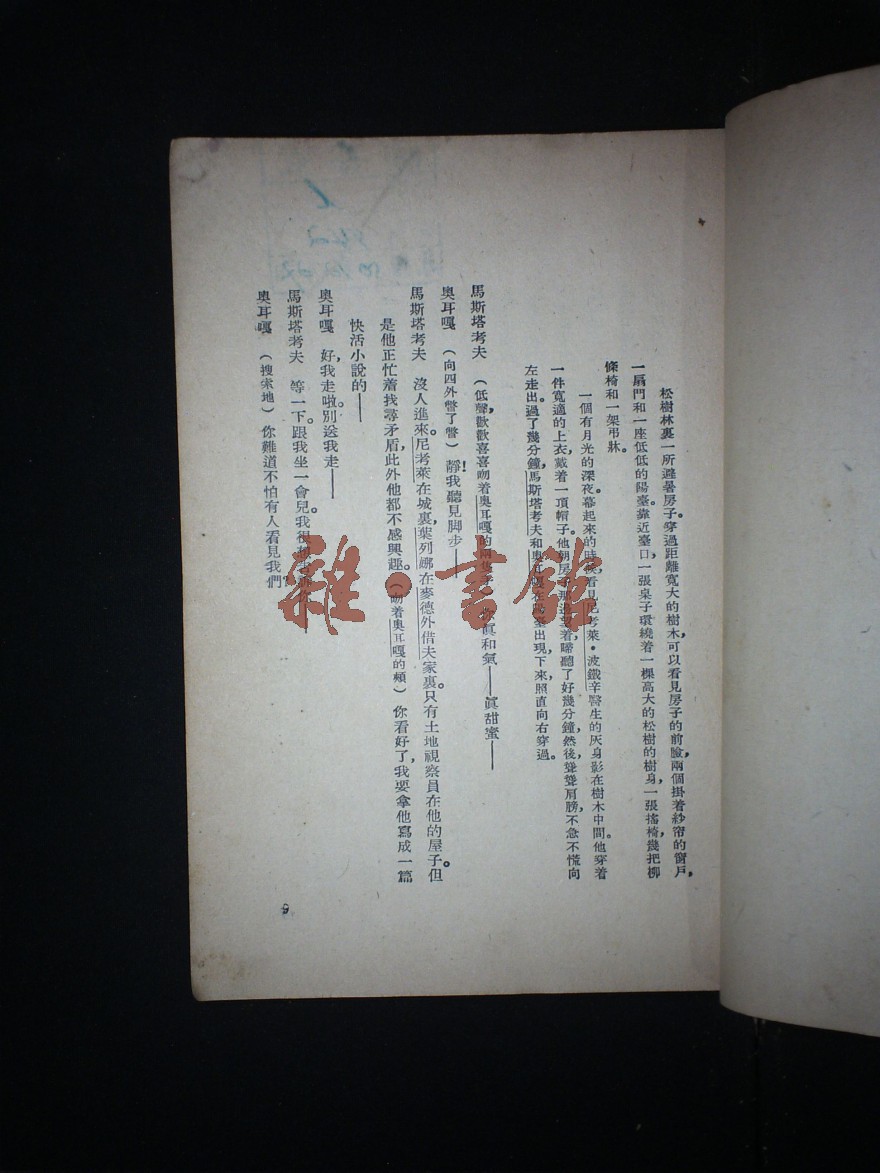 松樹林裏一所避暑房子。穿過距離寬大的樹木，可以看見房子的前臉，兩個掛着紗帘的窗戶，
一扇門和一座低低的陽臺。靠近臺口，一張桌子環繞着一棵高大的松樹的樹身，一張搖椅，幾把柳
條椅和一架弔牀。
一個有月光的深夜。幕起來的時候看見尼考萊·波鐵辛醫生的灰身影在樹木中間。他穿着
一件寬適的上衣，戴着一頂帽子。他朝房子那邊望着，諦聽了好幾分鐘，然後聳聳肩膀，不急不慌向
左走出。過了幾分鐘，馬斯塔考夫和奧耳嘎在陽臺出現，下來，照直向右穿過。
馬斯塔考夫 （低聲，歡歡喜喜吻着奧耳嘎的兩隻手） 你眞和氣——眞甜蜜——
奧耳嘎 （向四外瞥了瞥） 靜！我聽見脚步——
馬斯塔考夫 沒人進來。尼考萊在城裏，葉列娜在麥德外借夫家裏。只有土地視察員在他的屋子。但
是他正忙着找尋矛盾，此外他都不感興趣。（吻着奧耳嘎的頰）你看好了，我要拿他寫成一篇
快活小說的——
奧耳嘎 好，我走啦。別送我走——
馬斯塔考夫 等一下。跟我坐一會兒。我很想告訴你——
奧耳嘎 （搜索地）你難道不怕有人看見我們？
雜·書館